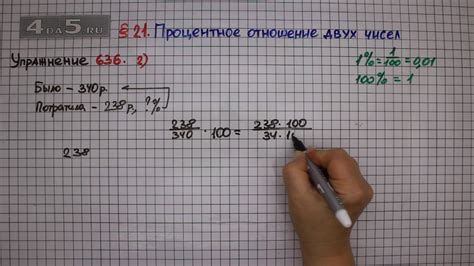 4DA5.RU
§ 21. Процентное отношение двух чисел
Упражнение 636. 2)
1% = 1/100 = 0,01
100% = 1
Было – 340 р.
Потратила – 238 р, ?%
238/340 · 100 = 238 · 100/34 · 1
238